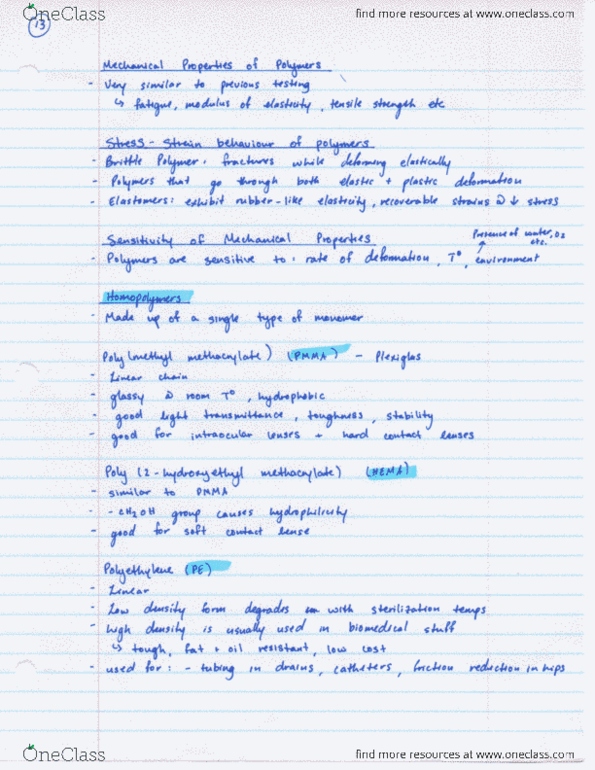 OneClass
find more resources at www.oneclass.com
13
Mechanical Properties of Polymers
- Very similar to previous testing
↳ fatigue, modulus of elasticity, tensile strength etc
Stress-Strain behaviour of polymers
- Brittle Polymer: fractures while deforming elastically
- Polymers that go through both elastic + plastic deformation
- Elastomers: exhibit rubber-like elasticity, recoverable strains @ ↓ stress
Sensitivity of Mechanical Properties
Presence of water, O2 etc.
- Polymers are sensitive to: rate of deformation, T°, environment
Homopolymers
- Made up of a single type of monomer
Poly(methyl methacylate) (PMMA) - Plexiglas
- Linear chain
- glassy @ room T°, hydrophobic
- good light transmittance, toughness, stability
- good for intraocular lenses + hard contact lenses
Poly (2-hydroxyethyl methacylate) (HEMA)
- similar to PMMA
- -CH2OH group causes hydrophilicity
- good for soft contact lense
Polyethylene (PE)
- Linear
- Low density form degrades with sterilization temps
- high density is usually used in biomedical stuff
↳ tough, fat + oil resistant, low cost
- used for: - tubing in drains, catheters, friction reduction in hips
OneClass
find more resources at www.oneclass.com